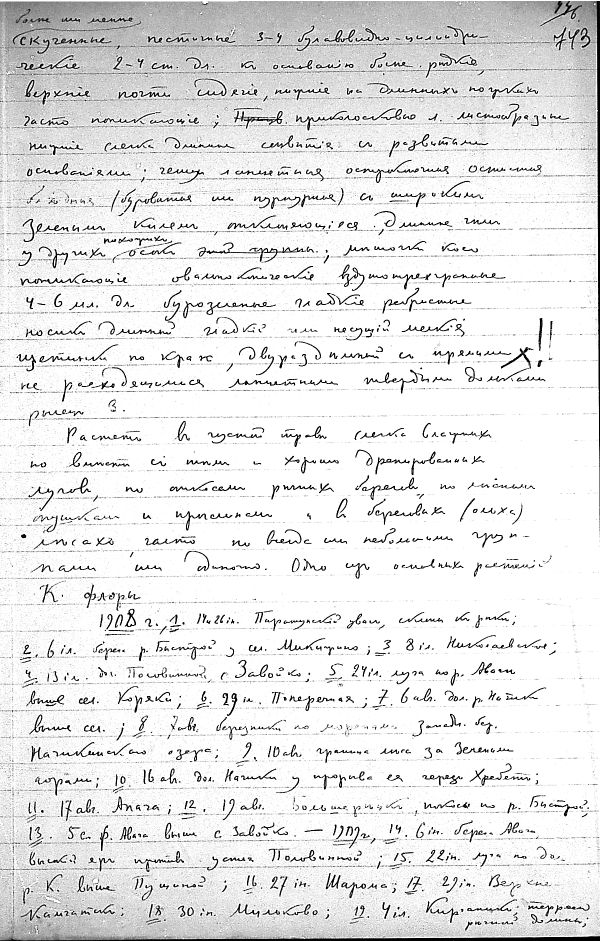 более или менее
743
скученные, пестичные 3-4 булавовидно-цилиндри-
ческие 2-4 ст. дл. к основанию более редкие,
верхние почти сидячие, нижние на длинных ножках
часто поникающие; приколосковые л. листообразные
нижние слегка длиннее соцветия с развитыми
основаниями; чешуи ланцетные остроконечные
(буроватые или пурпурные) с широким
зеленым килем, длиннее чем
у других похожих осок этой группы; мешочки косо
поникающие овально-конические вздутотрехгранные
4-6 мл. дл. бурозеленые гладкие ребристые
носик длинный гладкий или несущий мелкие
щетинки по краю, двураздельный с прямыми X!!
не расходящимися ланцетными твердыми дольками
рылец 3.
Растет в густой траве слегка влажных
но вместе с тем и хорошо дренированных
лугов, по откосам речных берегов, по лесным
опушкам и прогалинам и в береговых (ольха)
лесах, часто но всегда или небольшими груп-
пами или одиноко. Одно из основных растений
К. флоры
1908 г., 1. 14 и 26 іл. Паратунской увал, склон к реке;
2. 6 іл. берег р. Быстрой у сел. Микижино; 3 8 іл. Николаевское;
4. 13 іл. дол. Половинной, с Завойко; 5. 24 іл. луга по р. Авача
выше сел. Коряки; 6. 29 іл. Поперечная; 7. 6 ав. дол. р. Начики
выше сел.; 8. 7 ав. березняки по моренам запад. бер.
Начикинского озера; 9. 10 ав. граница леса за Зелеными
горами; 10. 16 ав. дол. Начики у прорыва ея через Хребет;
11. 17 ав. Апача; 12. 19 ав. Большерецк, покосы по р. Быстрой;
13. 5 с. р. Авача выше с Завойко. — 1909 г., 14. 6 іп. берег Авачи
высокий яр против устья Половинной; 15. 22 іп. луга по дол.
р. К. выше Пущиной; 16. 27 іп. Шарома; 17. 29 іп. Верхне
Камчатск; 18. 30 іп. Мильково; 19. 4 іл. Кирганик террасы
речной долины;